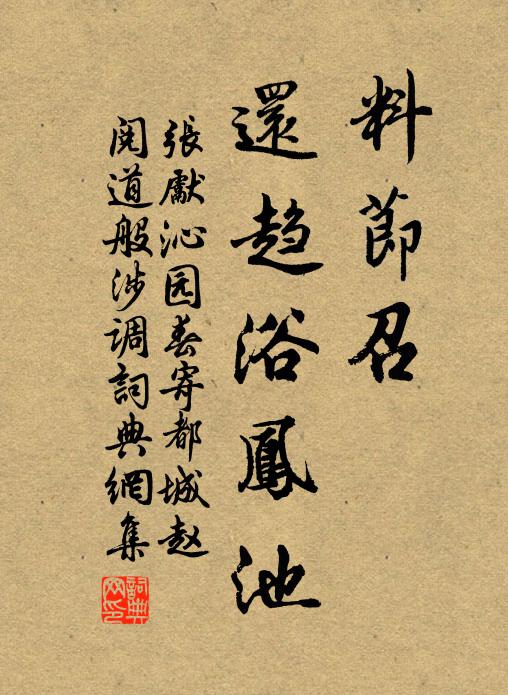 料節召
還趋浴鳳池
張獻沁园春寄都城赵
閱道般涉調詞典網集
詞典网印